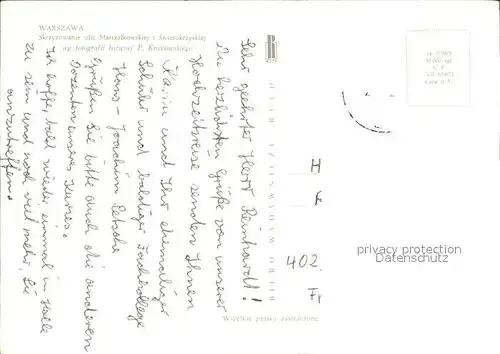 WARSZAWA
Skrzyżowanie ulic Marszałkowskiej i Świętokrzyskiej
wg fotografii barwnej P. Krassowskiego
Sehr geehrter Herr Reinhardt!
Die herzlichsten Grüße von unserer
Hochzeitsreise senden Ihnen
Karin und Ihr ehemaliger
Schüler und baldiger Fachkollege
Hans-Joachim
Grüßen Sie bitte auch die anderen
Dozenten unseres Kurses.
Ich hoffe, bald wieder einmal in Halle
zu sein und noch viel mehr, Sie
anzutreffen.
BIURO WYDAWNICZE RUCH
Wszelkie prawa zastrzeżone
H
F
402
Fr
privacy protection
Datenschutz